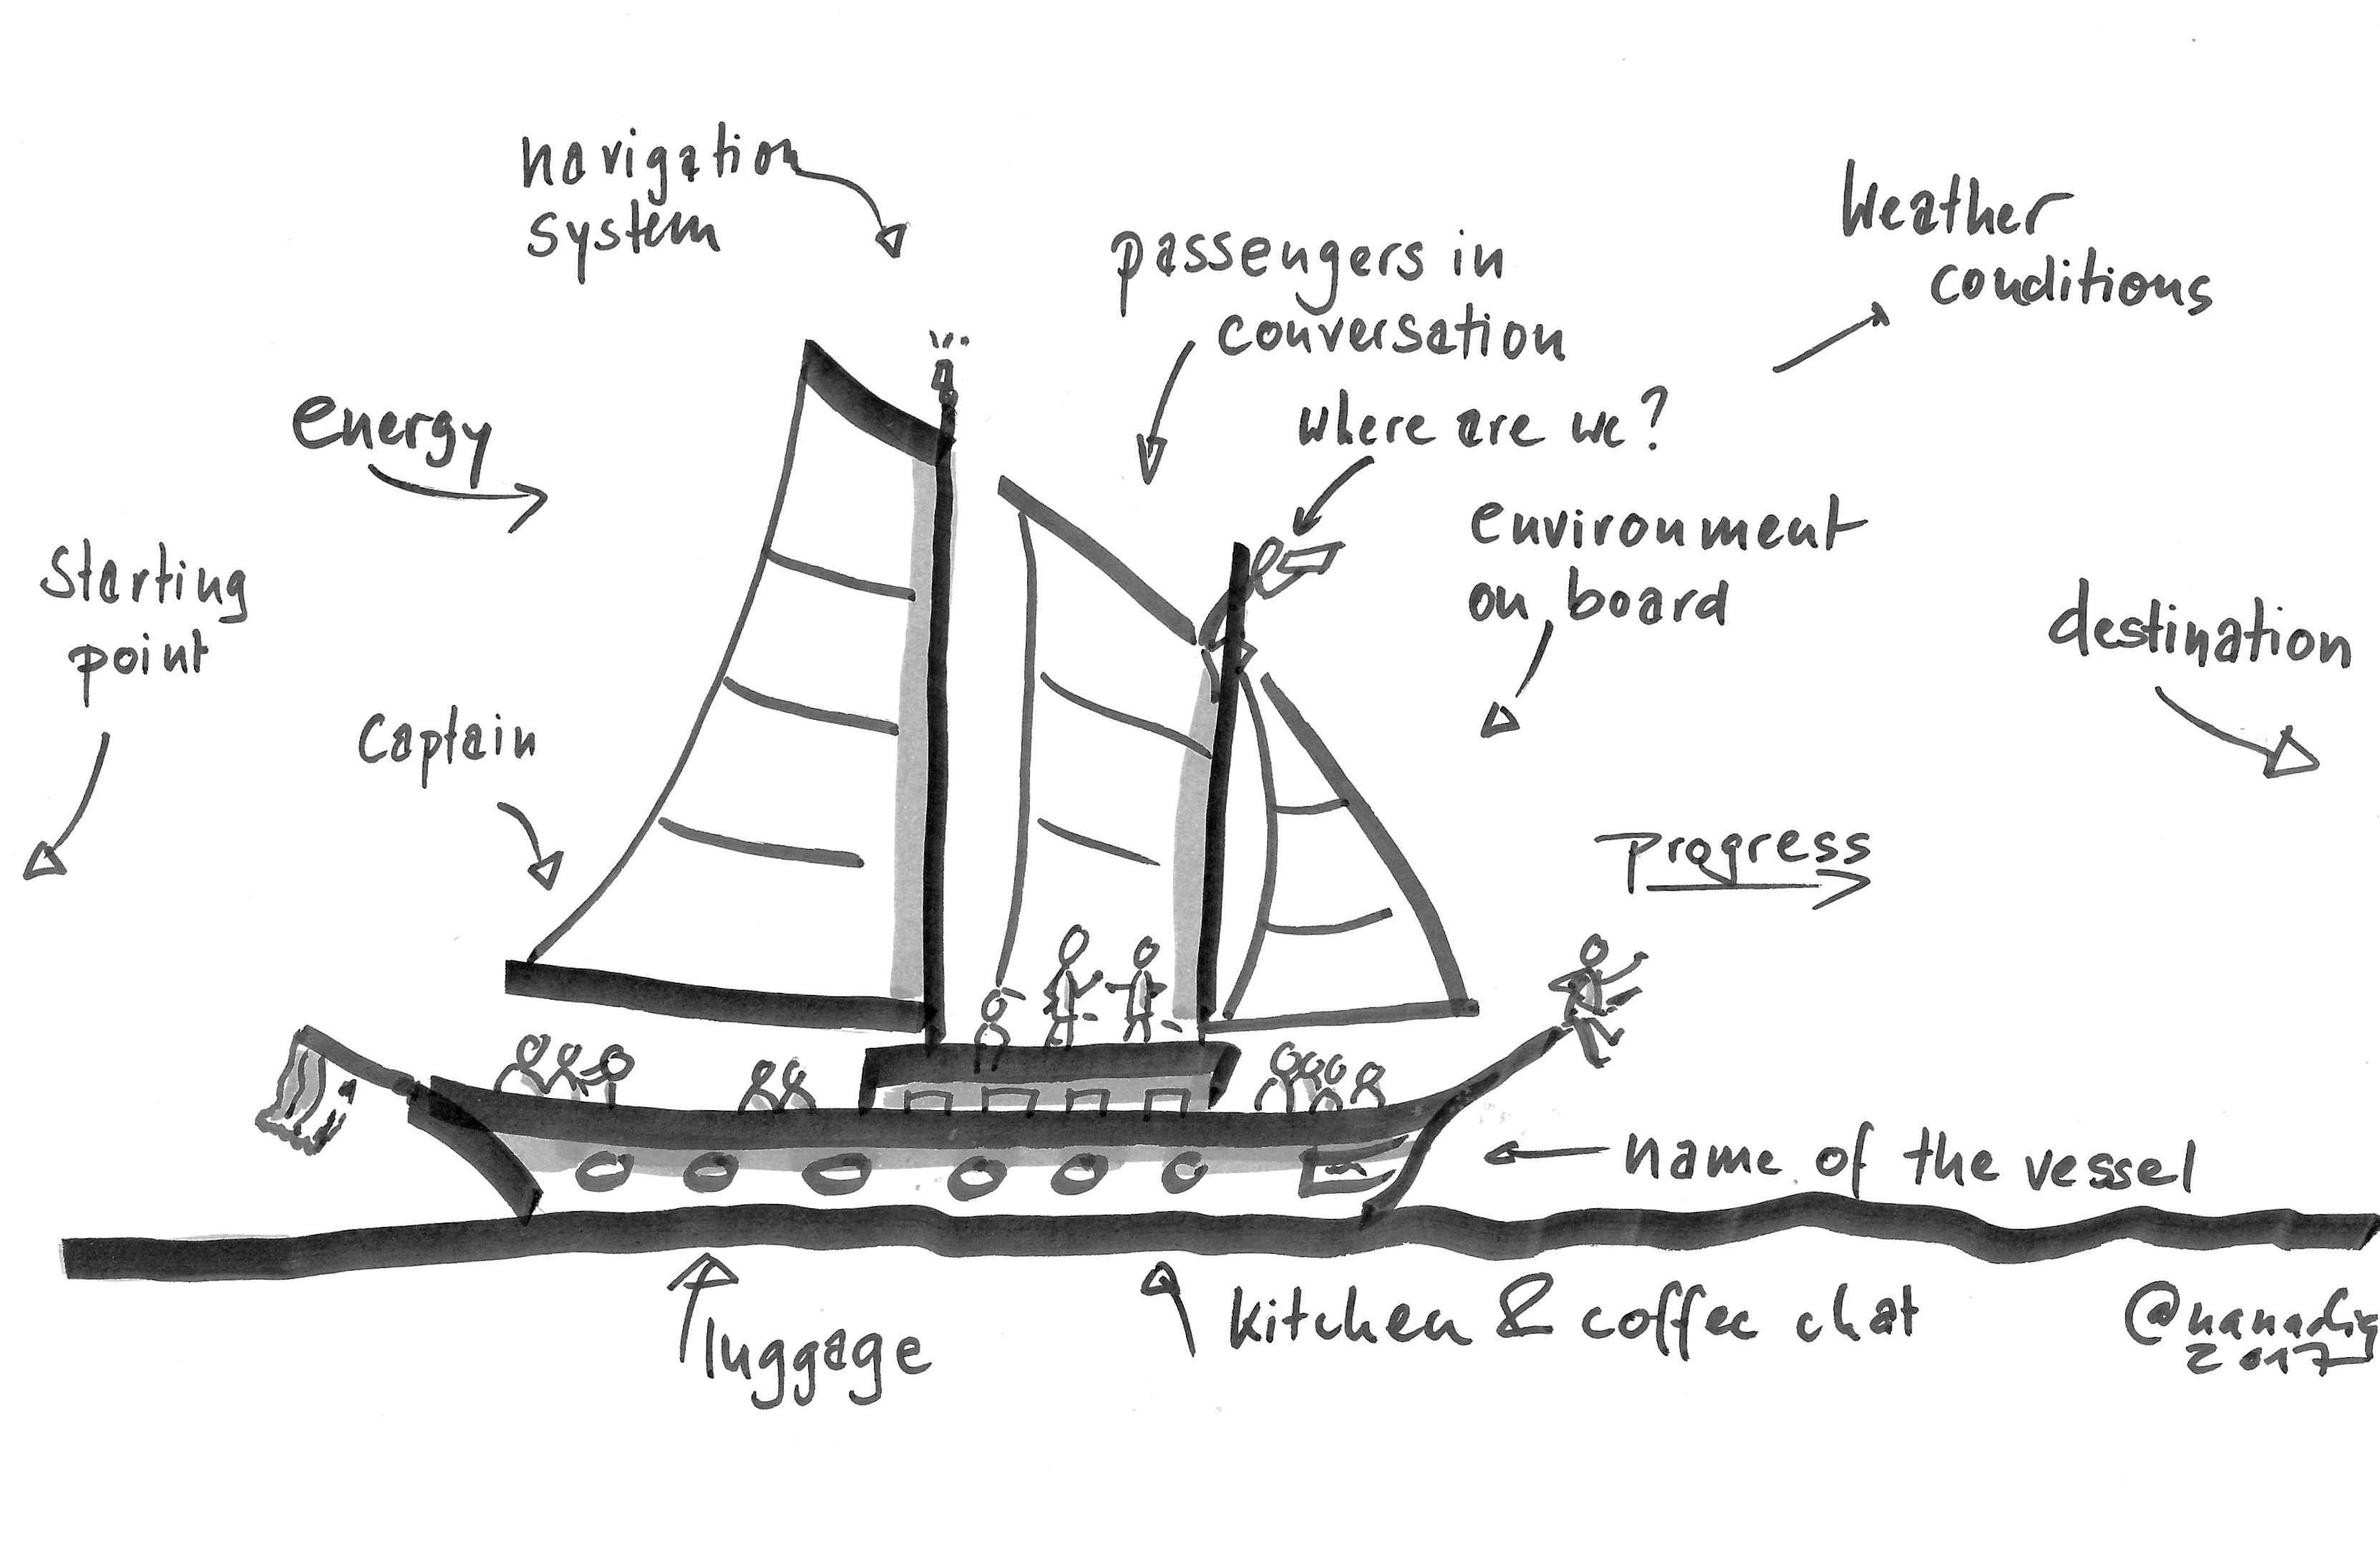 navigation
system
Weather
conditions
passengers in
conversation
where are we?
energy
environment
on board
starting
point
destination
Captain
progress
name of the vessel
luggage
kitchen & coffee chat
2017